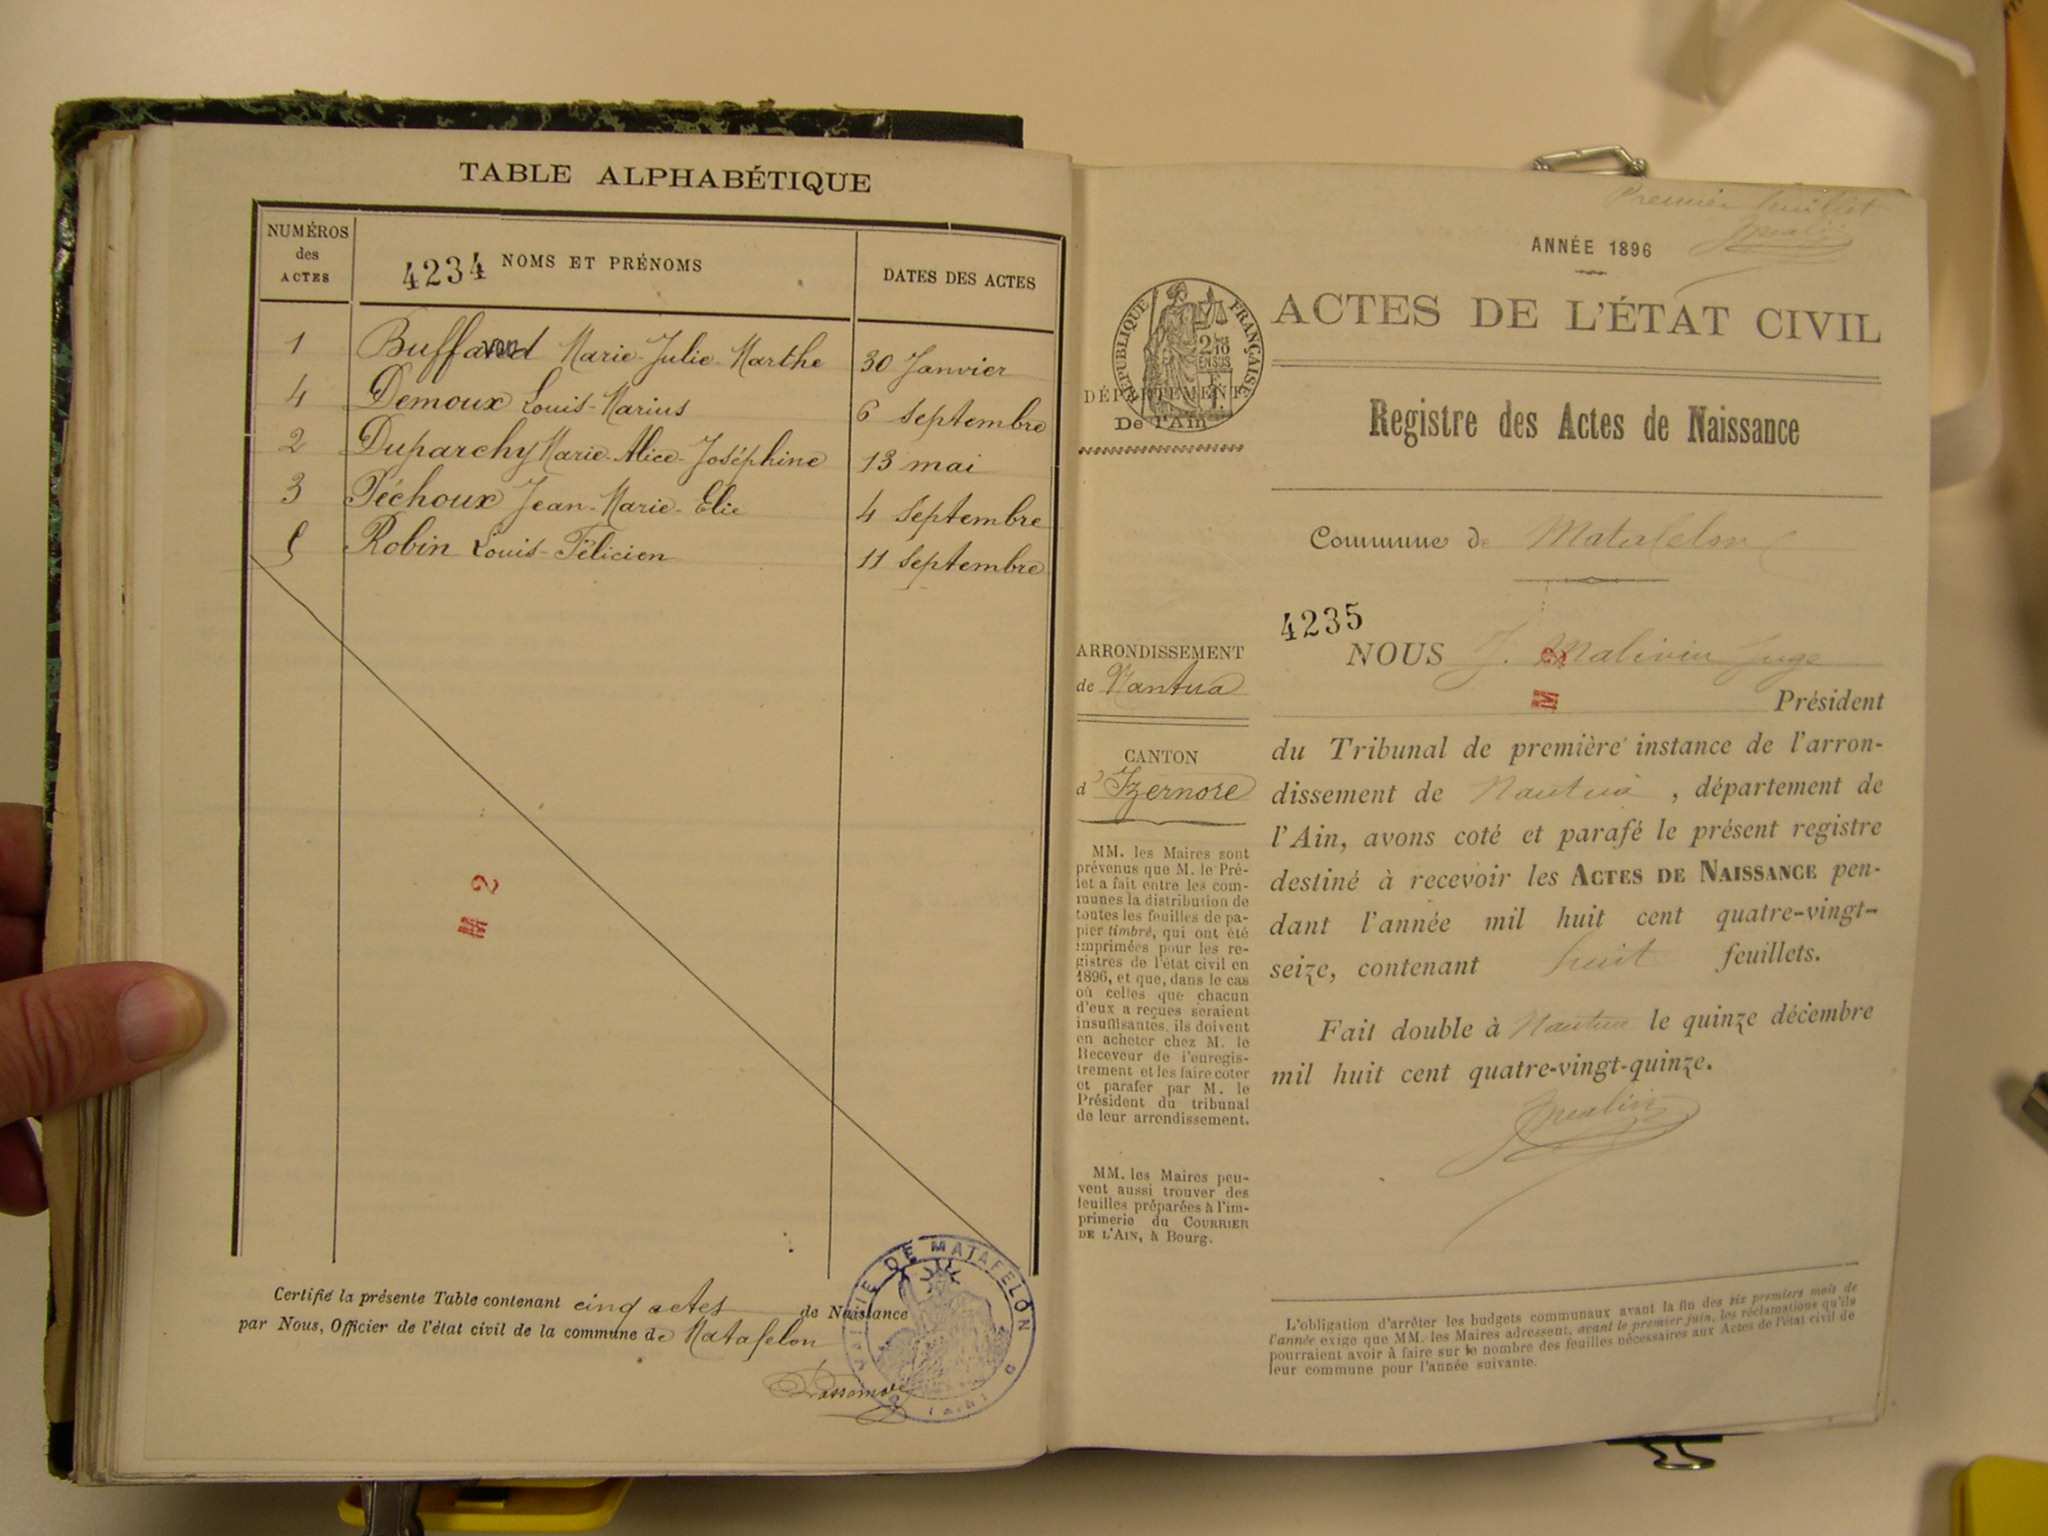 TABLE ALPHABÉTIQUE
NUMÉROS
des
ACTES
4234 NOMS ET PRÉNOMS
DATES DES ACTES
1 Buffavand Marie-Julie-Marthe 30 Janvier
4 Demoux Louis-Marius 6 septembre
2 Duparchy Marie-Alice-Joséphine 13 mai
3 Péchoux Jean-Marie-Elie 4 septembre
5 Robin Louis-Félicien 11 septembre
M 2
Certifié la présente Table contenant cinq actes de Naissance
par Nous, Officier de l'état civil de la commune de Matafelon
MAIRIE DE MATAFELON
(AIN)
Premier feuillet
ANNÉE 1896
RÉPUBLIQUE FRANÇAISE
ACTES DE L'ÉTAT CIVIL
DÉPARTEMENT
De l'Ain
Registre des Actes de Naissance
Commune de Matafelon
4235
ARRONDISSEMENT
de Nantua
CANTON
d'Izernore
MM. les Maires sont
prévenus que M. le Pré-
fet a fait entre les com-
munes la distribution de
toutes les feuilles de pa-
pier timbré, qui ont été
imprimées pour les re-
gistres de l'état civil en
1896, et que, dans le cas
où celles que chacun
d'eux a reçues seraient
insuffisantes, ils doivent
en acheter chez M. le
Receveur de l'enregis-
trement et les faire coter
et parafer par M. le
Président du tribunal
de leur arrondissement.
MM. les Maires peu-
vent aussi trouver des
feuilles préparées à l'im-
primerie du COURRIER
DE L'AIN, à Bourg.
NOUS J. Juge
M 2
Président
du Tribunal de première instance de l'arron-
dissement de Nantua, département de
l'Ain, avons coté et parafé le présent registre
destiné à recevoir les ACTES DE NAISSANCE pen-
dant l'année mil huit cent quatre-vingt-
seize, contenant huit feuillets.
Fait double à Nantua le quinze décembre
mil huit cent quatre-vingt-quinze.
L'obligation d'arrêter les budgets communaux avant la fin des six premiers mois de
l'année exige que MM. les Maires adressent, avant le premier juin, les réclamations qu'ils
pourraient avoir à faire sur le nombre des feuilles nécessaires aux Actes de l'état civil de
leur commune pour l'année suivante.